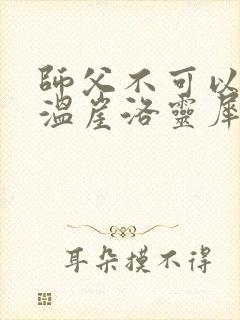 師父不可以
溫崖洛靈犀
耳朵摸不得